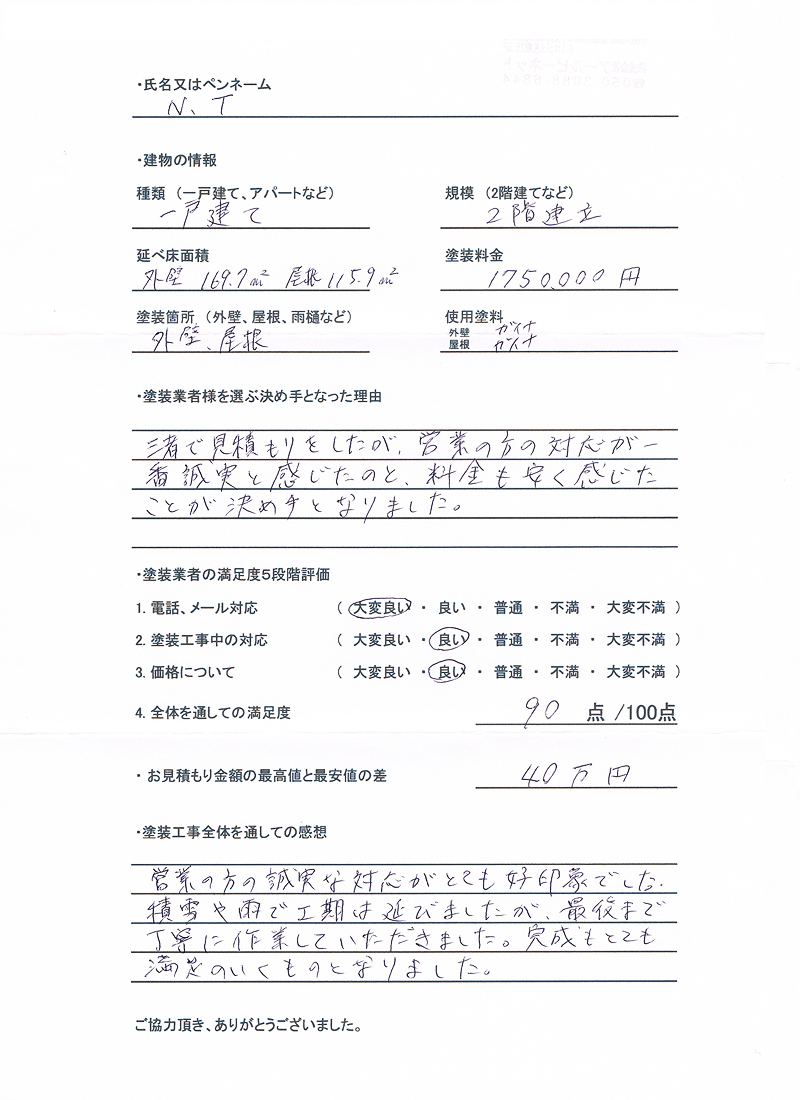 ・氏名又はペンネーム
N、T
・建物の情報
種類 （一戸建て、アパートなど） 規模 （2階建てなど）
一戸建て 2階建立
延べ床面積 塗装料金
外壁 169.7㎡ 屋根115.9㎡ 1750,000円
塗装箇所 （外壁、屋根、雨樋など） 使用塗料
外壁、屋根 外壁 ガイナ
屋根 ガイナ
・塗装業者様を選ぶ決め手となった理由
三者で見積もりをしたが、営業の方の対応が一
番誠実と感じたのと、料金も安く感じた
ことが決め手となりました。
・塗装業者の満足度5段階評価
1. 電話、メール対応 （ 大変良い ・ 良い ・ 普通 ・ 不満 ・ 大変不満 ）
2. 塗装工事中の対応 （ 大変良い ・ 良い ・ 普通 ・ 不満 ・ 大変不満 ）
3. 価格について （ 大変良い ・ 良い ・ 普通 ・ 不満 ・ 大変不満 ）
4. 全体を通しての満足度 90 点 /100点
・ お見積もり金額の最高値と最安値の差 40万円
・塗装工事全体を通しての感想
営業の方の誠実な対応がとても好印象でした.
積雪や雨で工期は延びましたが、最後まで
丁寧に作業していただきました。完成もとても
満足のいくものとなりました。
ご協力頂き、ありがとうございました。